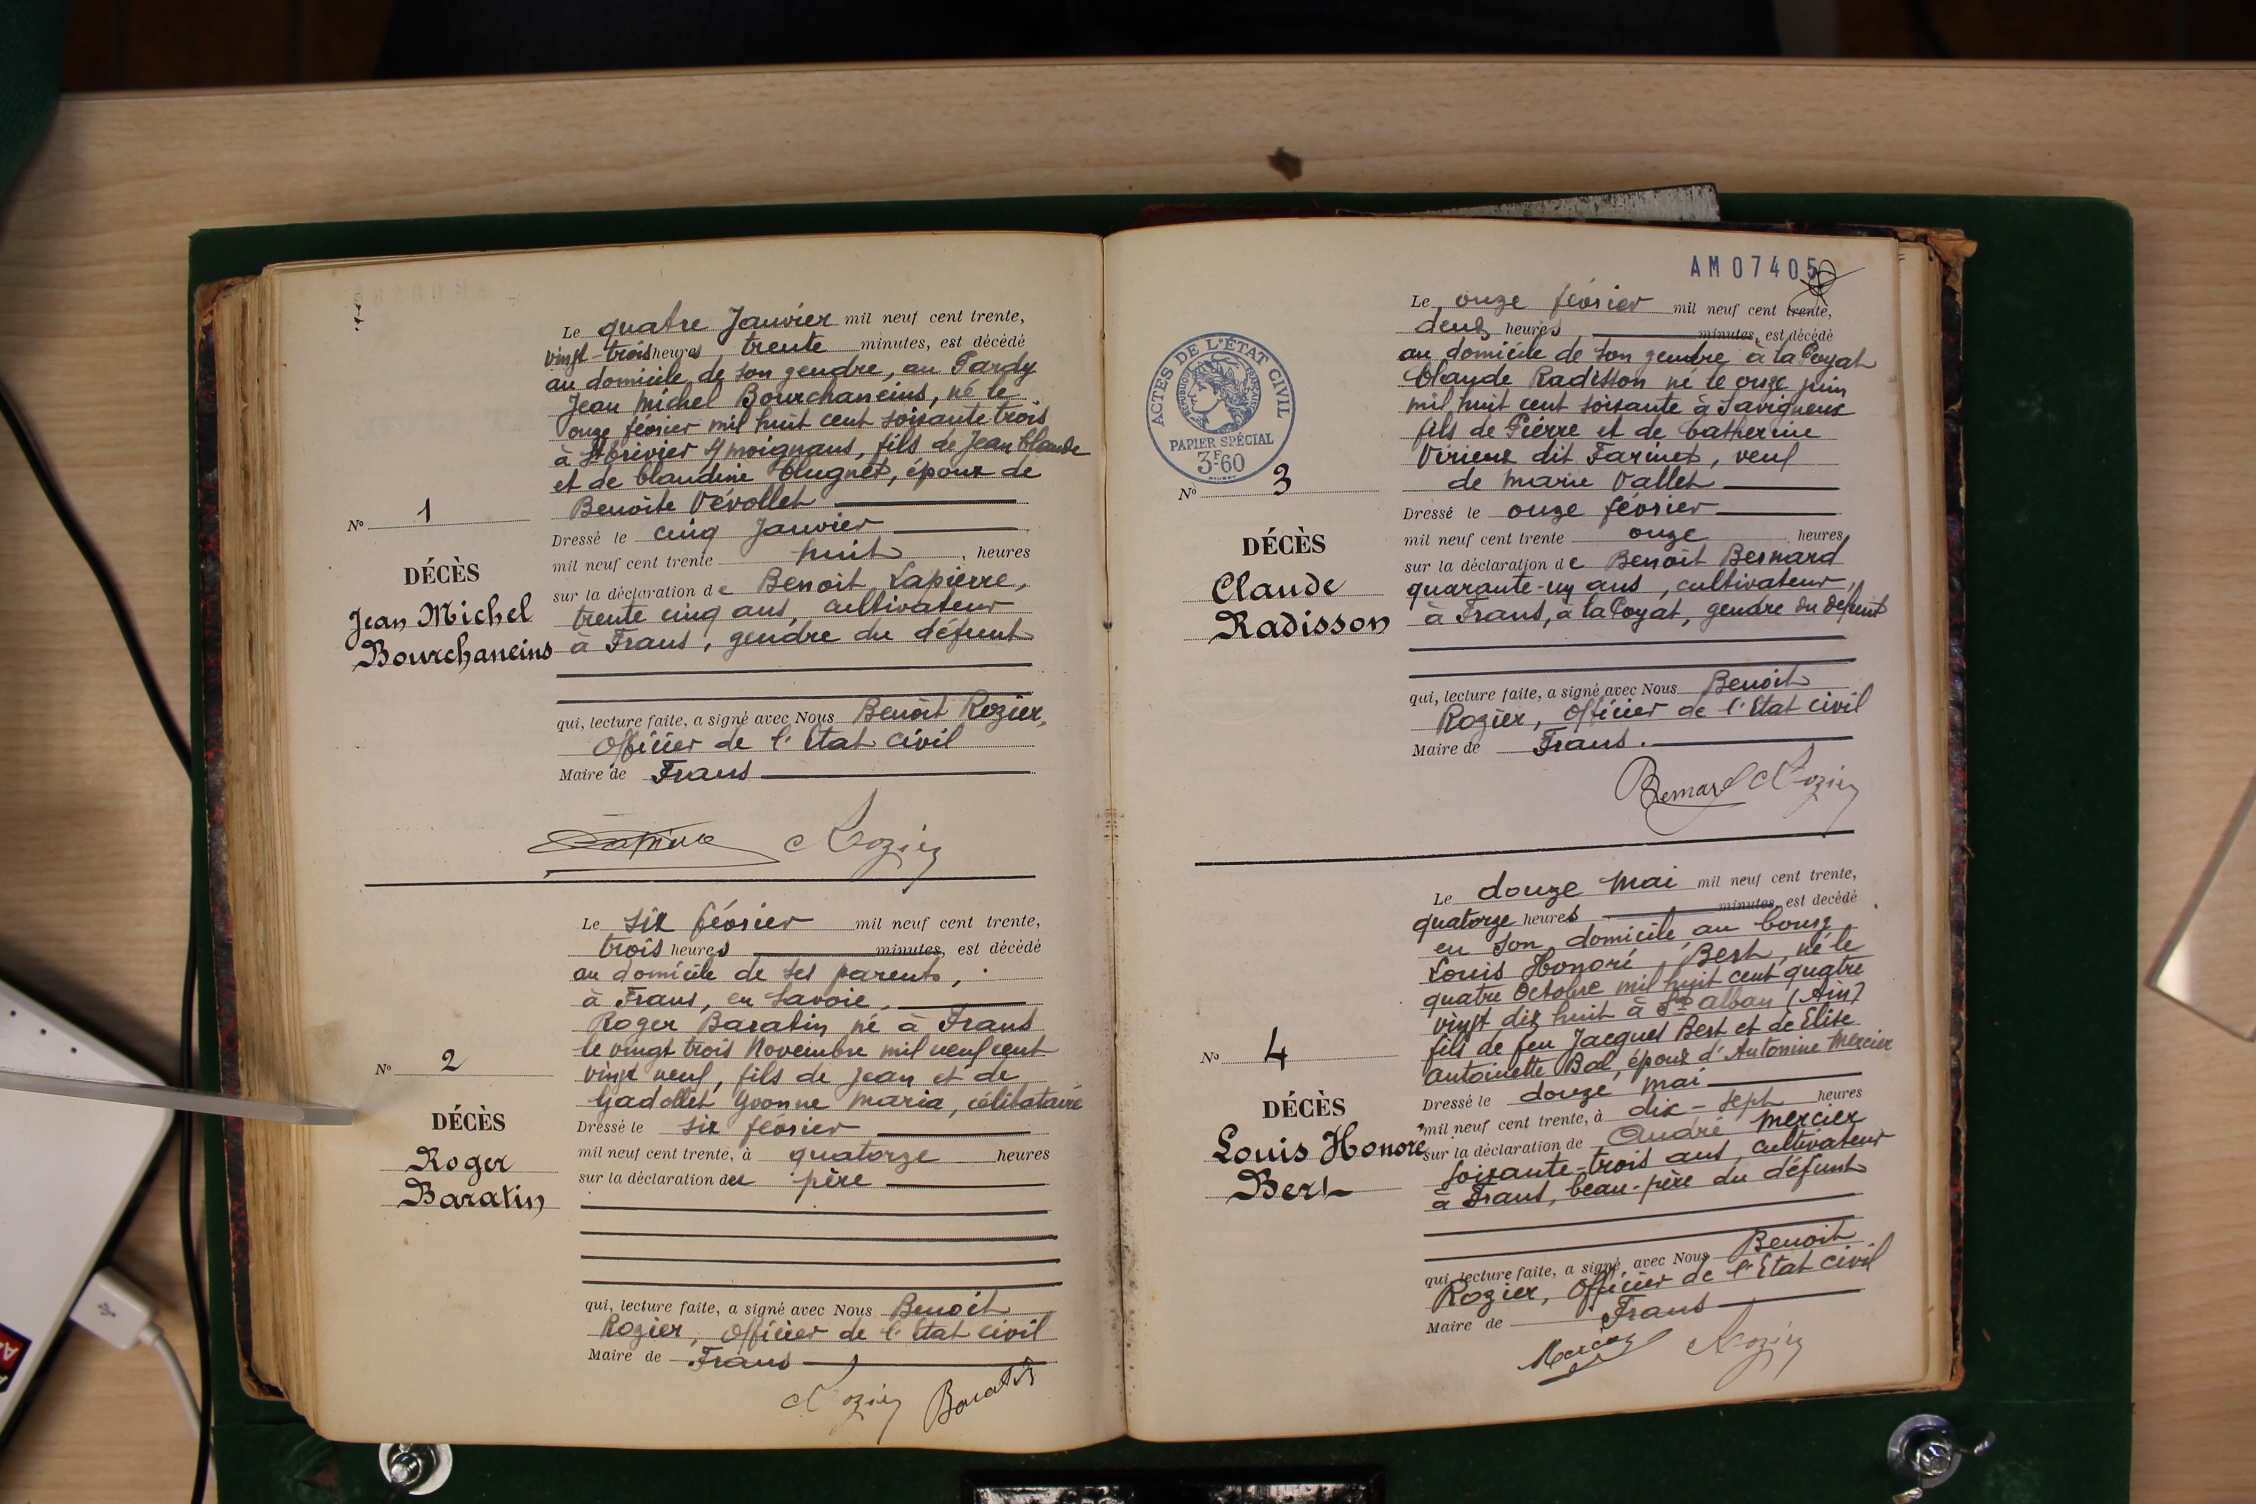 Le quatre Janvier mil neuf cent trente,
vingt-trois heures, trente minutes, est décédé
au domicile de son gendre, au Tardy
Jean Michel Bourchaneins, né le
onze février mil huit cent soixante trois
à St Trivier s/ moignans, fils de Jean Claude
et de Claudine Clugnet, époux de
Benoite Vévollet
Dressé le cinq Janvier
mil neuf cent trente huit, heures
sur la déclaration de Benoit Lapierre,
trente cinq ans, cultivateur
à Frans, gendre du défunt
qui, lecture faite, a signé avec Nous Benoit Rozier,
Officier de l'Etat civil
Maire de Frans
Lapierre Rozier
No 1
DÉCÈS
Jean Michel
Bourchaneins
Le six février mil neuf cent trente,
trois heures minutes, est décédé
au domicile de ses parents,
à Frans, en Savoie,
Roger Baratin né à Frans
le vingt trois Novembre mil neuf cent
vingt neuf, fils de Jean et de
Gadollet Yvonne Maria, célibataire
Dressé le six février
mil neuf cent trente, à quatorze heures
sur la déclaration du père
qui, lecture faite, a signé avec Nous Benoit
Rozier, Officier de l'Etat civil
Maire de Frans
Rozier Baratin
No 2
DÉCÈS
Roger
Baratin
AM07405
Le onze février mil neuf cent trente,
deux heures minutes, est décédé
au domicile de son gendre à la Poyat
Claude Radisson né le onze juin
mil huit cent soixante à Savigneux
fils de Pierre et de Catherine
Virieux dit Farinet, veuf
de Marie Vallet
Dressé le onze février
mil neuf cent trente onze heures
sur la déclaration de Benoit Bernard
quarante-un ans, cultivateur,
à Frans, à la Poyat, gendre du défunt
qui, lecture faite, a signé avec Nous Benoit
Rozier, Officier de l'Etat civil
Maire de Frans.
Bernard Rozier
ACTES DE L'ÉTAT CIVIL
RÉPUBLIQUE FRANÇAISE
PAPIER SPÉCIAL
3F.60
No 3
DÉCÈS
Claude
Radisson
Le douze Mai mil neuf cent trente,
quatorze heures minutes, est décédé
en son domicile, au bourg
Louis Honoré Bert, né le
quatre Octobre mil huit cent quatre
vingt dix huit à St Alban (Ain)
fils de feu Jacques Bert et de Elise
Antoinette Bal, époux d'Antonine Mercier
Dressé le douze mai
mil neuf cent trente, à dix-sept heures
sur la déclaration de André Mercier
soixante-trois ans, cultivateur
à Frans, beau-père du défunt
qui, lecture faite, a signé avec Nous Benoit
Rozier, Officier de l'Etat civil
Maire de Frans
Mercier Rozier
No 4
DÉCÈS
Louis Honoré
Bert